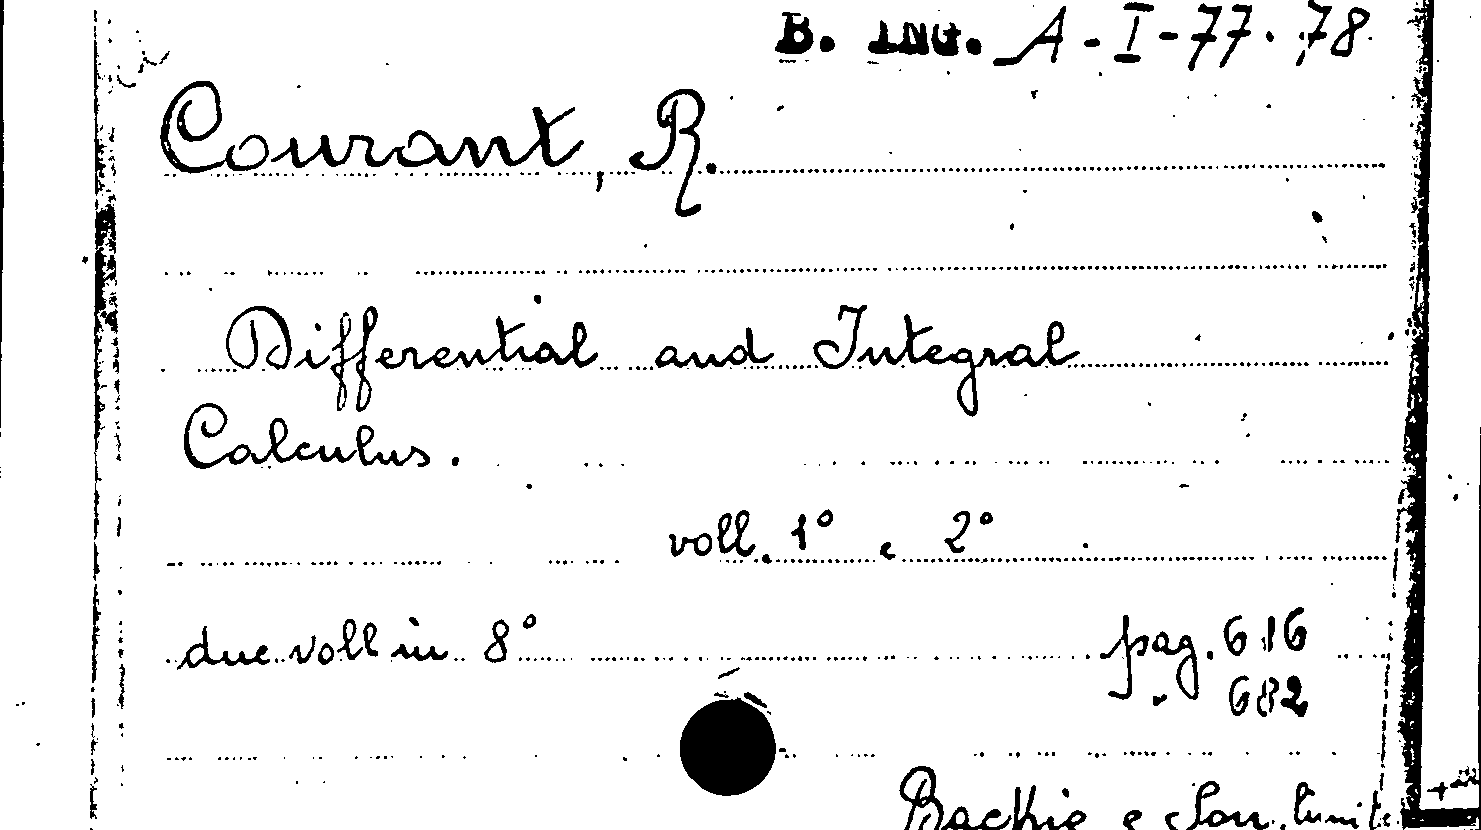 B. ING. A-I-77-78
Courant, R.
Differential and Integral
Calculus.
voll. 1° e 2°
due voll in 8° pag. 616
" 682
Backie e Son, limite